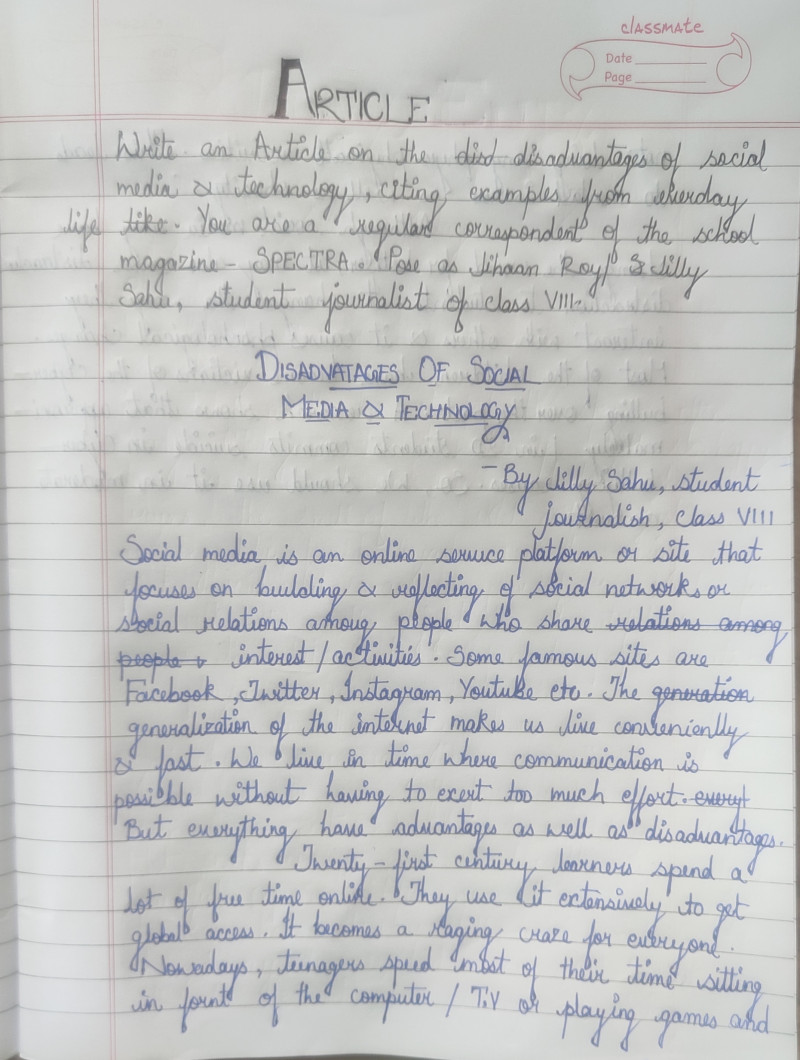 classmate
Date
Page
ARTICLE
Write an Article on the disd disadvantages of social
media & technology, citing examples from everday
life like. You are a regular correspondent of the school
magazine - SPECTRA. Pose as Jihaan Roy/ & Jilly
Sahu, student journalist of class VIII.
DISADVATAGES OF SOCIAL
MEDIA & TECHNOLOGY
- By Jilly Sahu, student
journalish, class VIII
Social media is an online service platform or site that
focuses on building & reflecting of social networks or
social relations among people who share relations among
people interest/activities. Some famous sites are
Facebook, Twitter, Instagram, Youtube etc. The generation
generalization of the internet makes us live conveniently
& fast. We live in time where communication is
possible without having to exert too much effort. everyt
But everything have advantages as well as disadvantages.
Twenty-first century learners spend a
lot of free time online. They use it extensively to get
global access. It becomes a raging craze for everyone.
Nowadays, teenagers speed most of their time sitting
in foront of the computer / T.V or playing games and